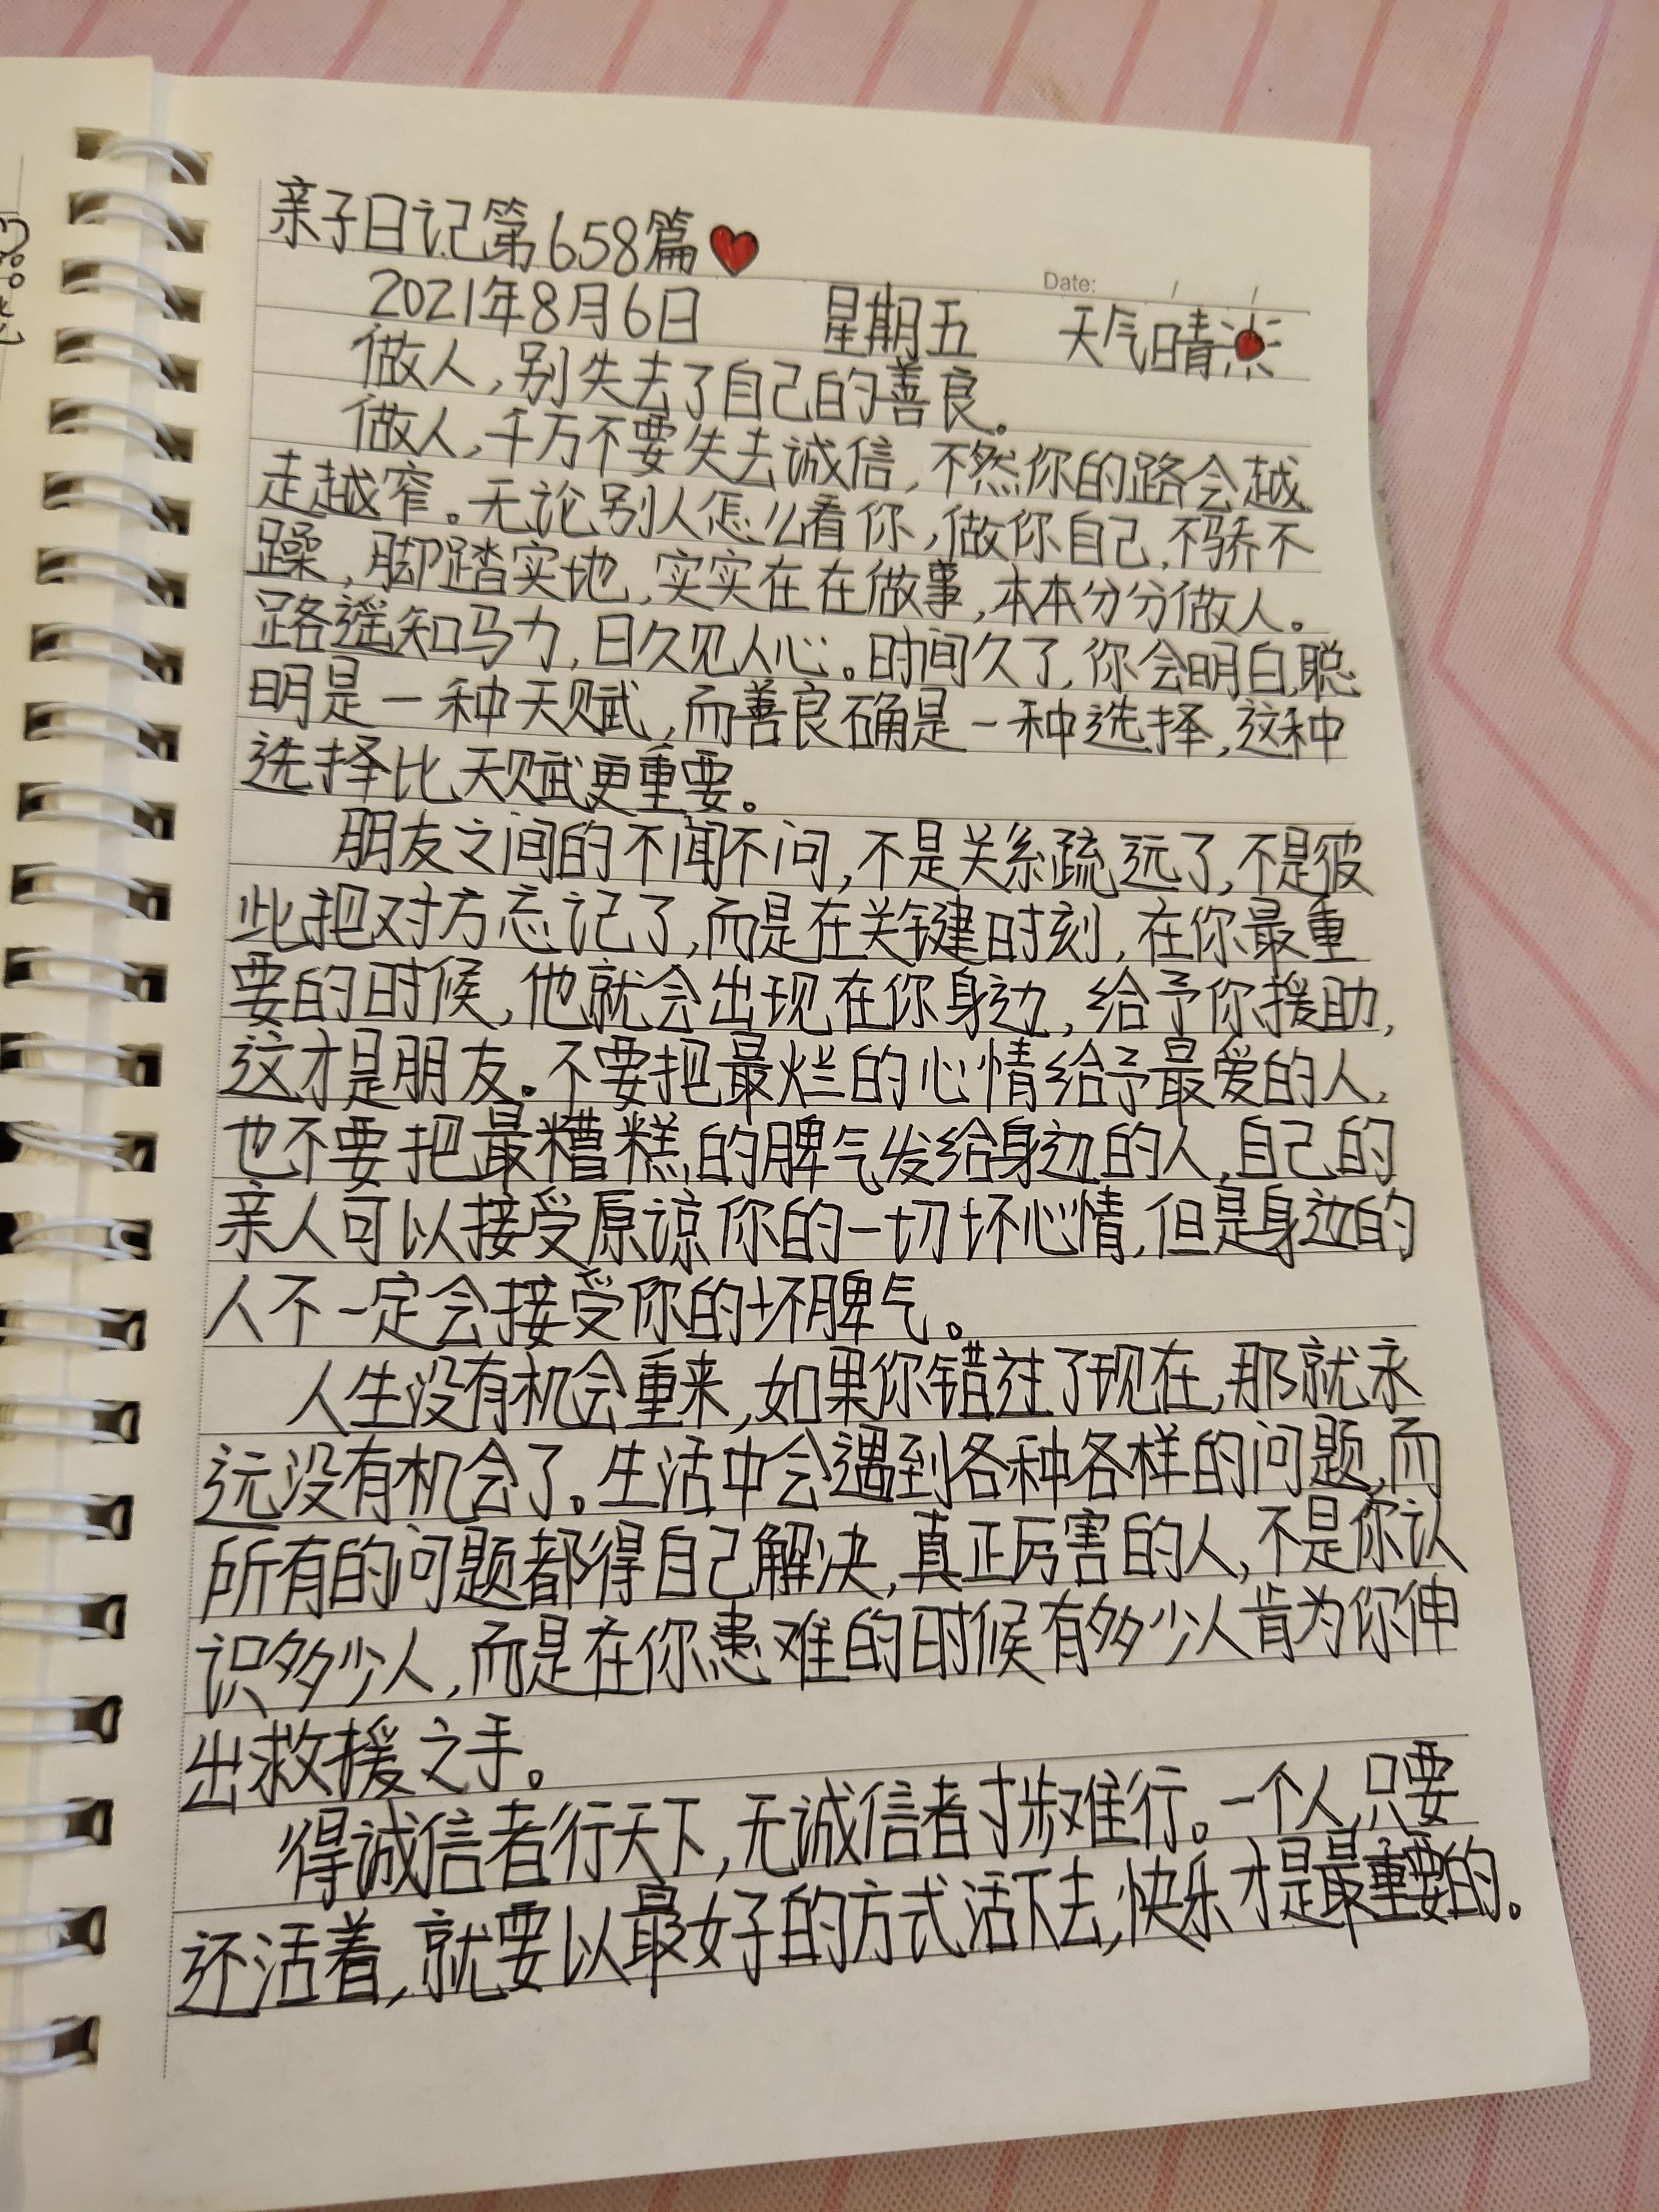 亲子日记第658篇
Date: / /
2021年8月6日 星期五 天气晴
做人,别失去了自己的善良。
做人,千万不要失去诚信,不然你的路会越
走越窄。无论别人怎么看你,做你自己,不骄不
躁,脚踏实地,实实在在做事,本本分分做人。
路遥知马力,日久见人心。时间久了,你会明白,聪
明是一种天赋,而善良确是一种选择,这种
选择比天赋更重要。
朋友之间的不闻不问,不是关系疏远了,不是彼
此把对方忘记了,而是在关键时刻,在你最重
要的时候,他就会出现在你身边,给予你援助,
这才是朋友。不要把最烂的心情给予最爱的人,
也不要把最糟糕的脾气发给身边的人,自己的
亲人可以接受原谅你的一切坏心情,但是身边的
人不一定会接受你的坏脾气。
人生没有机会重来,如果你错过了现在,那就永
远没有机会了。生活中会遇到各种各样的问题,而
所有的问题都得自己解决,真正厉害的人,不是你认
识多少人,而是在你患难的时候有多少人肯为你伸
出救援之手。
得诚信者行天下,无诚信者寸步难行。一个人,只要
还活着,就要以最好的方式活下去,快乐才是最重要的。